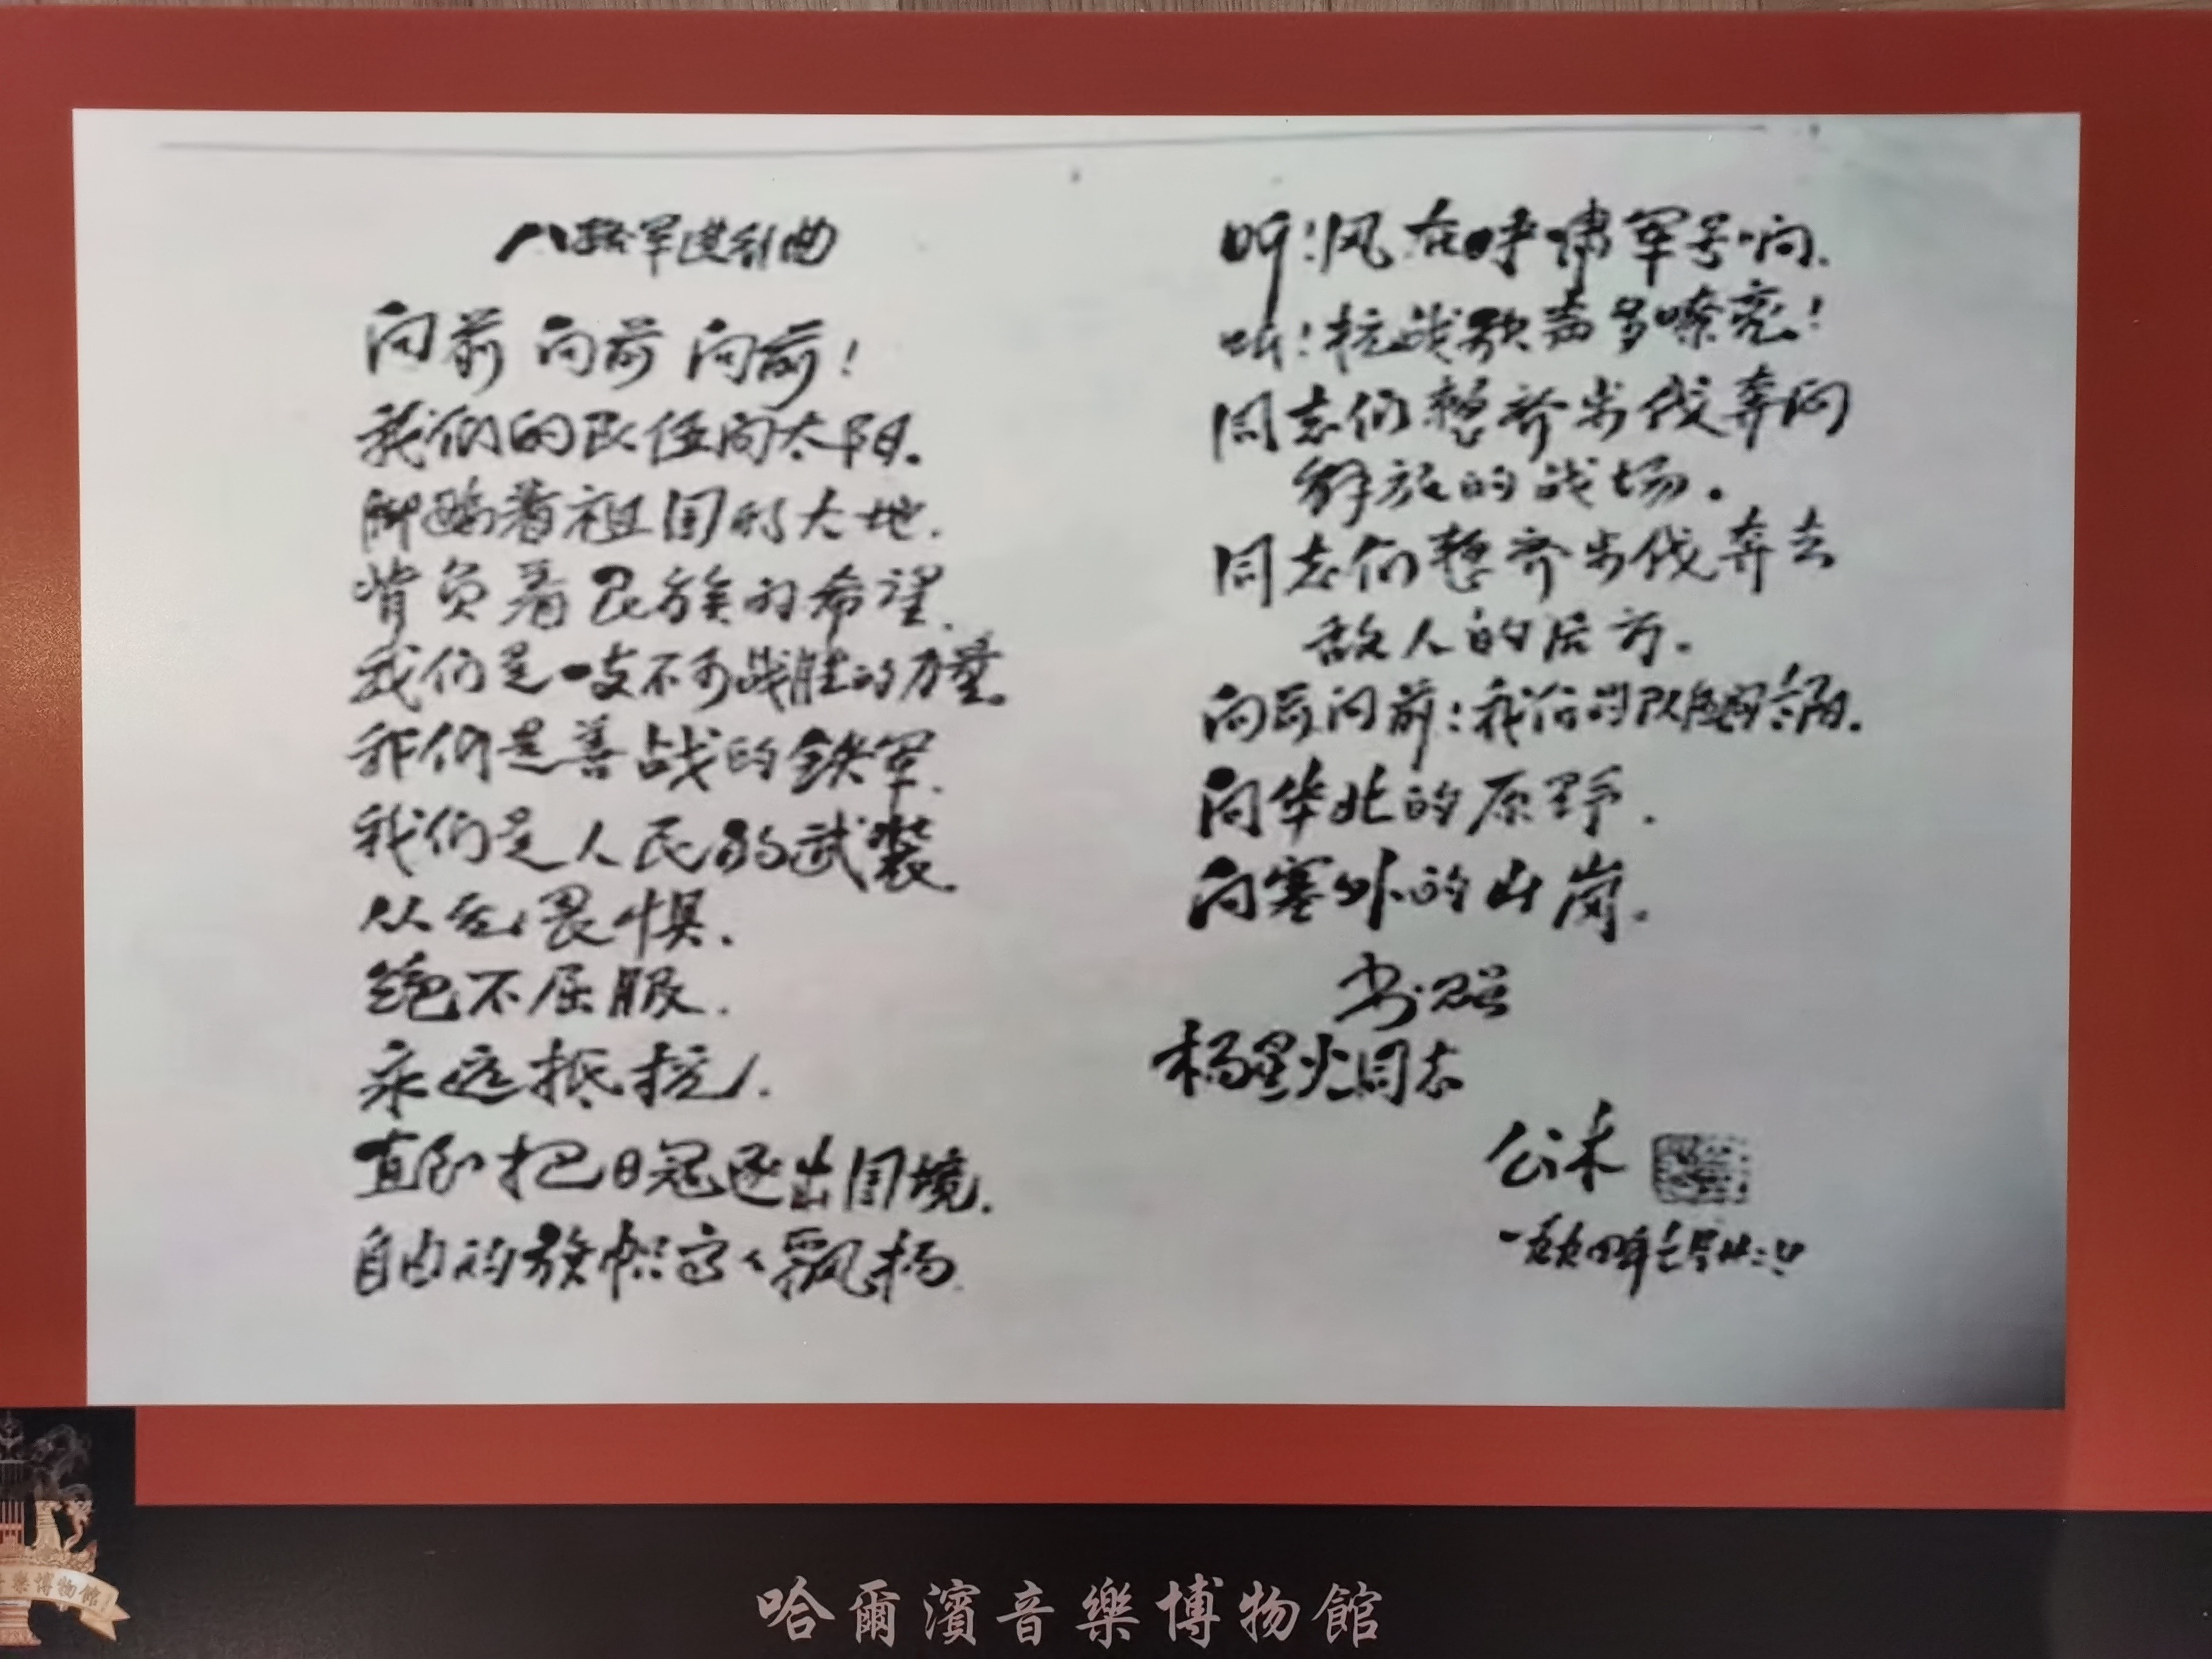 八路军进行曲
向前 向前 向前!
我们的队伍向太阳.
脚踏着祖国的大地.
背负着民族的希望.
我们是一支不可战胜的力量.
我们是善战的铁军.
我们是人民的武装.
从无畏惧.
绝不屈服.
永远抵抗.
直到把日寇逐出国境.
自由的旗帜高々飘扬.
听!风在呼啸军号响.
听!抗战歌声多嘹亮!
同志们整齐步伐奔向
解放的战场.
同志们整齐步伐奔去
敌人的后方.
向前向前!我们的队伍向太阳.
向华北的原野.
向塞外的山岗.
书赠
杨星火同志
公木
一九九四年七月廿二日
哈爾濱音樂博物館
音樂博物館